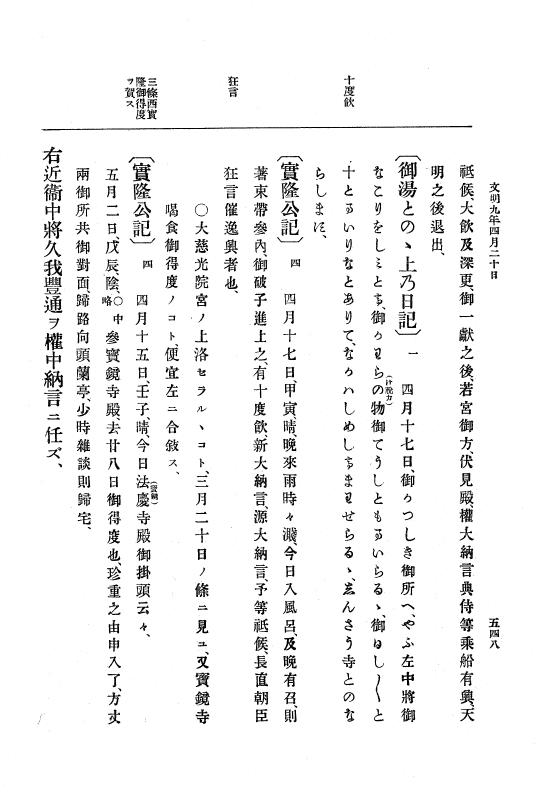 文明九年四月二十日
五四八
祗候、大飮及深更、御一獻之後、若宮御方、伏見殿、權大納言典侍等乘船有興、天
明之後退出、
〔御湯とのゝ上乃日記〕 一 四月十七日、御うつしき御所へ、やふ左中將御
なこりをしミとて、御うりらの物御てうしともまいらるゝ、御ひし〳〵と
十とまいりなとありて、なかハしめしちませらるゝ、ゑんさう寺とのな
らしまに、
十度飮
〔實隆公記〕 四 四月十七日、甲寅、晴、晩來雨時々濺、今日入風呂、及晩有召、則
著束帶參內、御破子進上之、有十度飮、新大納言、源大納言、予等祗候、長直朝臣
狂言催逸興者也、
狂言
〇大慈光院宮ノ上洛セラルヽコト、三月二十日ノ條ニ見ユ、又寶鏡寺
喝食御得度ノコト、便宜左ニ合敍ス、
〔實隆公記〕 四 四月十五日、壬子、晴、今日法慶寺殿御掛頭云々、
三條西實
隆御得度
ヲ賀ス
五月二日、戊辰、陰、〇中略 參寶鏡寺殿、去廿八日御得度也、珍重之由申入了、方丈
兩御所共御對面、歸路向頭蘭亭、少時雜談則歸宅、
右近衞中將久我豐通ヲ權中納言ニ任ズ、